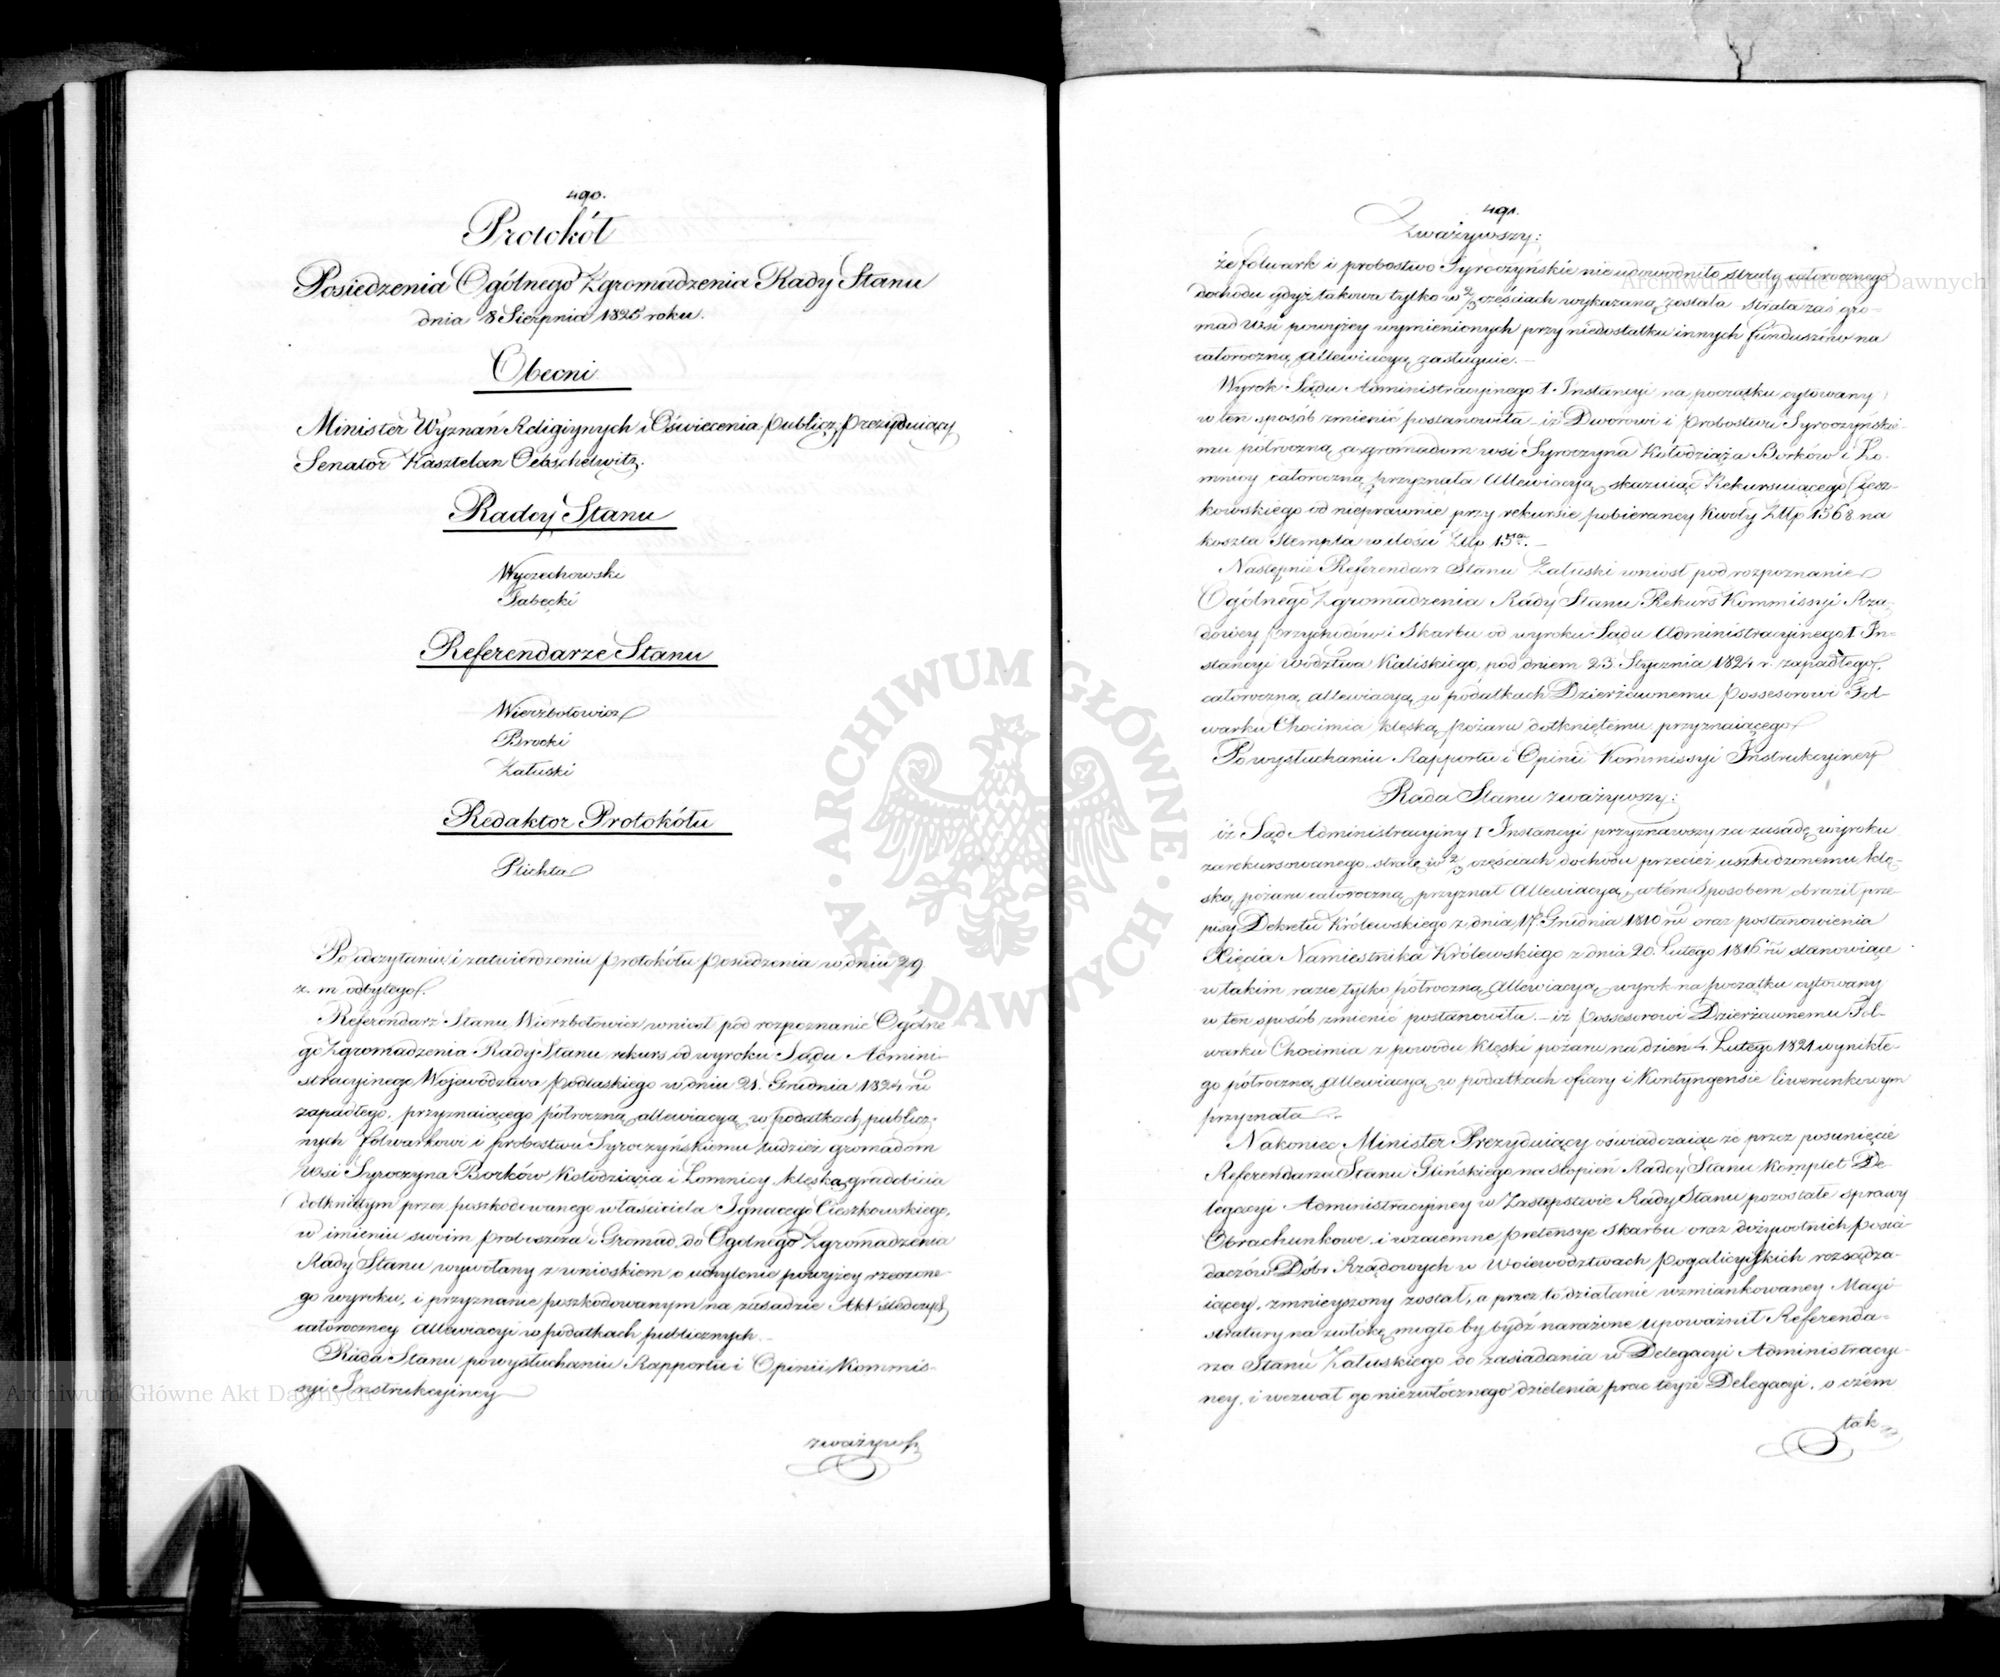 490.
Protokół
Posiedzenia Ogólnego Zgromadzenia Rady Stanu
dnia 8 Sierpnia 1825 roku.
Obecni
Minister Wyznań Religiynych i Oświecenia Publicz. prezyduiący
Senator Kasztelan Oebschelwitz.
Radcy Stanu
Wyczechowski
Tabęcki
Referendarze Stanu
Wierzbołowicz
Brocki
Załuski
Redaktor Protokółu
Plichta
Po odczytaniu i zatwierdzeniu protokółu posiedzenia w dniu 29
z. m. odbytego.
Referendarz Stanu Wierzbołowicz wniosł pod rozpoznanie Ogólne
go Zgromadzenia Rady Stanu rekurs od wyroku Sądu Admini-
stracyinego Województwa Podlaskiego w dniu 21. Grudnia 1824 ru
zapadłego, przyznaiącego półroczną allewiacyą w podatkach publicz-
nych folwarkowi i probostwu Syroczyńskiemu tudzież gromadom
Wsi Syroczyna Borków Kołodziąża i Łomnicy klęską gradobicia
dotkniętym przez poszkodowanego właściciela Ignacego Cieszkowskiego,
w imieniu swoim proboszcza i Gromad, do Ogólnego Zgromadzenia
Rady Stanu wywołany z wnioskiem o uchylenie powyżey rzeczone-
go wyroku, i przyznanie poszkodowanym na zasadzie Akt śledczych
całoroczney allewiacyi w podatkach publicznych.
Rada Stanu po wysłuchaniu Rapportu i Opinii Kommis-
syi Instrukcyiney
zważywszy
491.
Zważywszy:
że folwark i probostwo Syroczyńskie nie udowodniło straty całorocznego
dochodu gdyż takowa tylko w 2/3 częściach wykazaną została strata zaś gro-
mad Wsi powyżey wymienionych przy niedostatku innych funduszów na
całoroczną allewiacyą zasługuie.
Wyrok Sądu Administracyinego 1. Instancyi na początku cytowany
w ten sposób zmienić postanowiła iż Dworowi i probostwu Syroczyńskie-
mu półroczną a gromadom wsi Syroczyna Kołodziąża Borków i Ło-
mnicy całoroczną przyznała allewiacyą skazuiąc Rekursuiącego Ciesz-
kowskiego od nieprawnie przy rekursie pobieraney kwoty Złtp 1368 na
koszta Stempla w ilości Złtp 15.
Następnie Referendarz Stanu Załuski wniosł pod rozpoznanie
Ogólnego Zgromadzenia Rady Stanu Rekurs Kommissyi Rzą-
dowey Przychodów i Skarbu od wyroku Sądu Administracyinego I In-
stancyi Wodztwa Kaliskiego, pod dniem 23. Stycznia 1824 r. zapadłego,
całoroczną allewiacyą w podatkach Dzierżawnemu Possesorowi Fol-
warku Chocimia klęską pożaru dotkniętemu przyznaiącego
Po wysłuchaniu Rapportu i Opinii Kommissyi Instrukcyiney
Rada Stanu zważywszy:
iż Sąd Administracyiny I Instancyi przyznawszy za zasadę wyroku
zarekursowanego stratę w 2/3 częściach dochodu przecież uszkodzonemu klę-
ską pożaru całoroczną przyznał Allewiacyą, w tém sposobem obraził prze-
pisy Dekretu Królewskiego z dnia 17. Grudnia 1810 ru oraz postanowienia
Xięcia Namiestnika Królewskiego z dnia 20. Lutego 1816 ru stanowiące
w takim razie tylko półroczną Allewiacyą, wyrok na początku cytowany
w ten sposób zmienić postanowiła. – iż possesorowi Dzierżawnemu Fol-
warku Chocimia z powodu klęski pożaru na dzień 4. Lutego 1821 wynikłe-
go półroczną allewiacyą w podatkach ofiary i Kontyngensie liwerunkowym
przyznała.
Nakoniec Minister Prezyduiący oświadczaiąc że przez posunięcie
Referendarza Stanu Glińskiego na stopień Radcy Stanu Komplet De-
legacyi Administracyiney w Zastępstwie Rady Stanu pozostałe sprawy
Obrachunkowe i wzaiemne pretensye Skarbu oraz dożywotnich posia
daczów Dóbr Rządowych w Woiewództwach pogalicyiskich rozsądza-
iącey, zmnieyszony został, a przez to działanie wzmiankowaney Magi
stratury na zwłokę mogłoby bydź narażone upoważnił Referenda-
rza Stanu Załuskiego do zasiadania w Delegacyi Administracyi-
ney, i wezwał go niezwłócznego dzielenia prac teyże Delegacyi, o czém
tak
ARCHIWUM GŁÓWNE AKT DAWNYCH
Archiwum Główne Akt Dawnych
Archiwum Główne Akt Dawnych